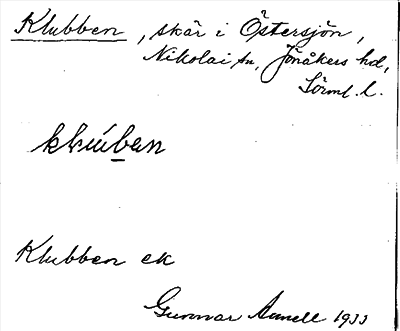 Klubben, skär i Östersjön,
Nikolai sn, Jönåkers hd,
Sörml. l.
Klubben ek
Gunnar Annell 1933